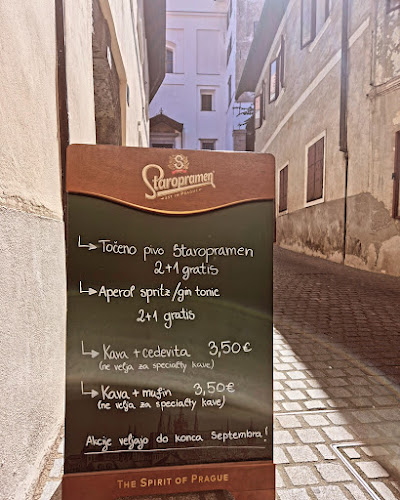 Staropramen
Točeno pivo Staropramen
2+1 gratis
Aperol spritz/gin tonic
2+1 gratis
Kava + cedevita 3,50€
(ne velja za specialty kave)
Kava + mufin 3,50€
(ne velja za specialty kave)
Akcije veljajo do konca Septembra!
THE SPIRIT OF PRAGUE